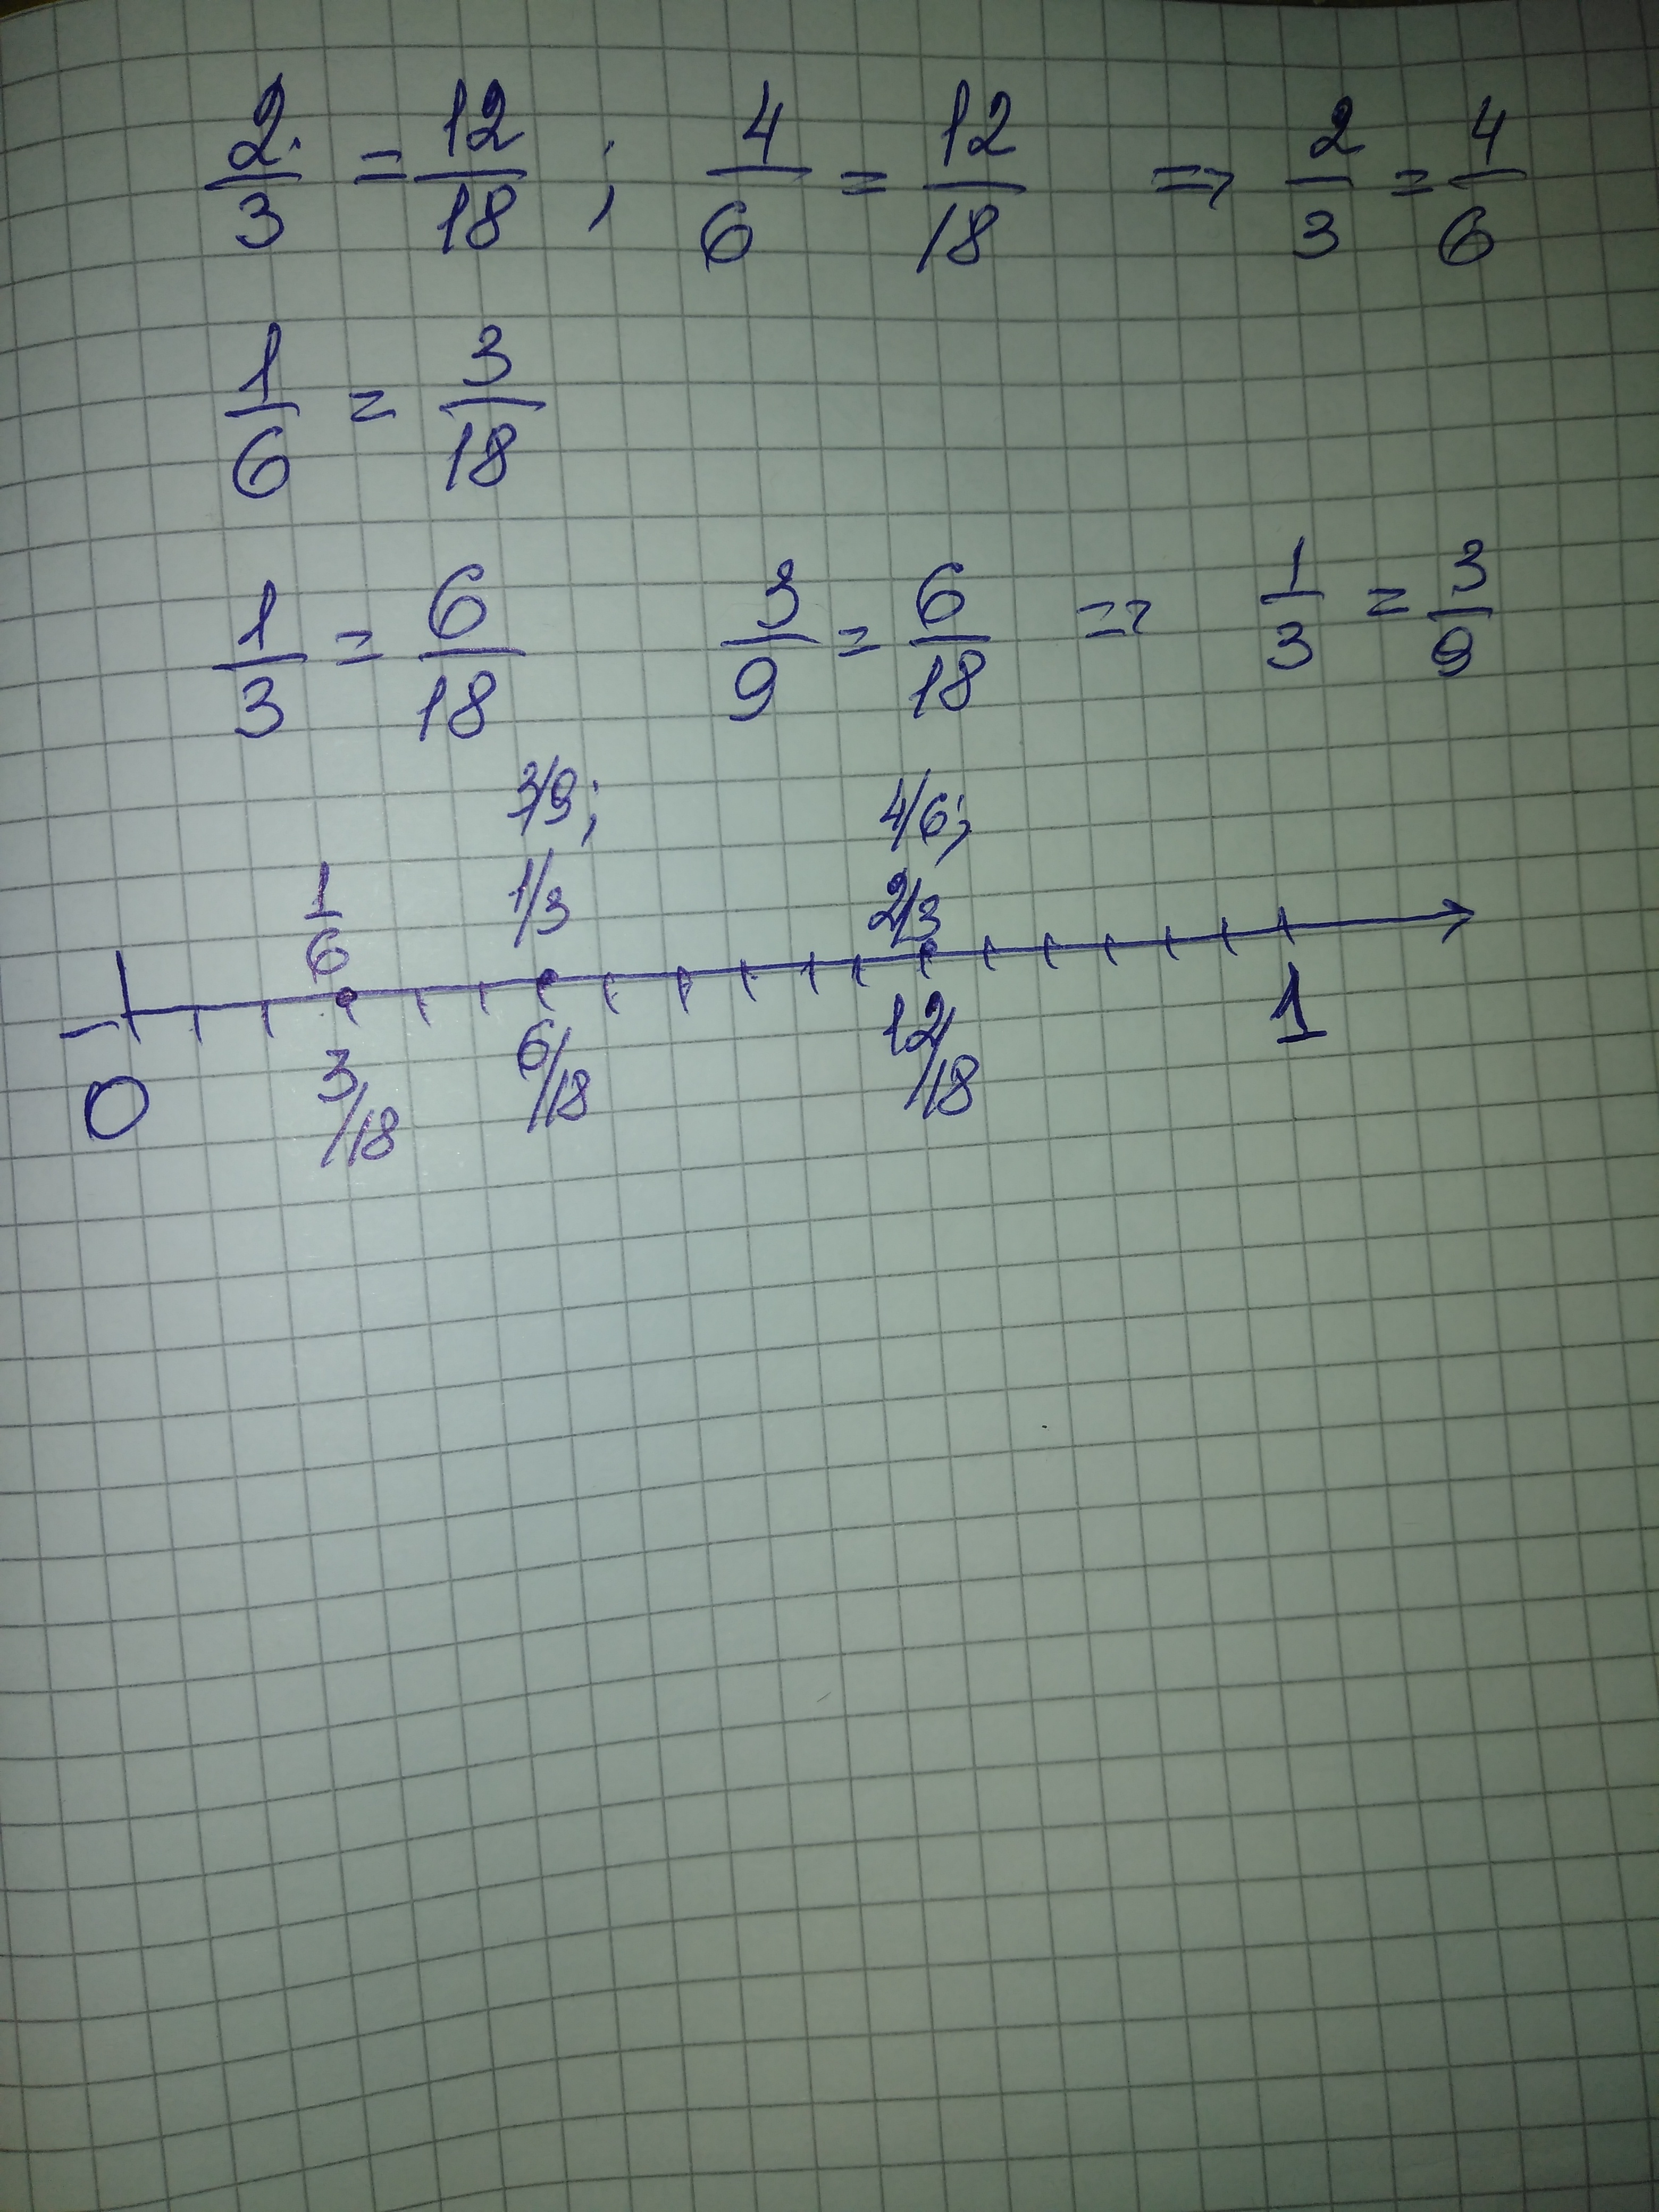 2/3 = 12/18 ; 4/6 = 12/18 => 2/3 = 4/6
1/6 = 3/18
1/3 = 6/18 3/9 = 6/18 => 1/3 = 3/9
3/9; 4/6;
1/6 1/3 2/3
0 3/18 6/18 12/18 1